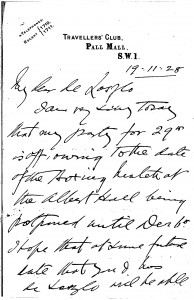 TELEPHONES
REGENT
TRAVELLERS' CLUB,
PALL MALL.
S.W.1.
19-11-28
My dear de Laszlo
I am very sorry today
that my party for 29th
is off owing to the date
of the Boxing Match at
the Albert Hall being
postponed until Dec 6th
I hope that at some future
date that you & Mrs
de Laszlo will be able